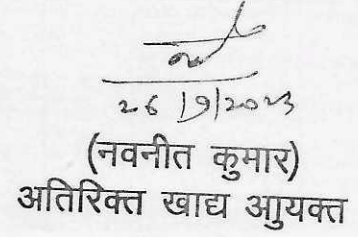 26/9/2023
(नवनीत कुमार)
अतिरिक्त खाद्य आुयक्त